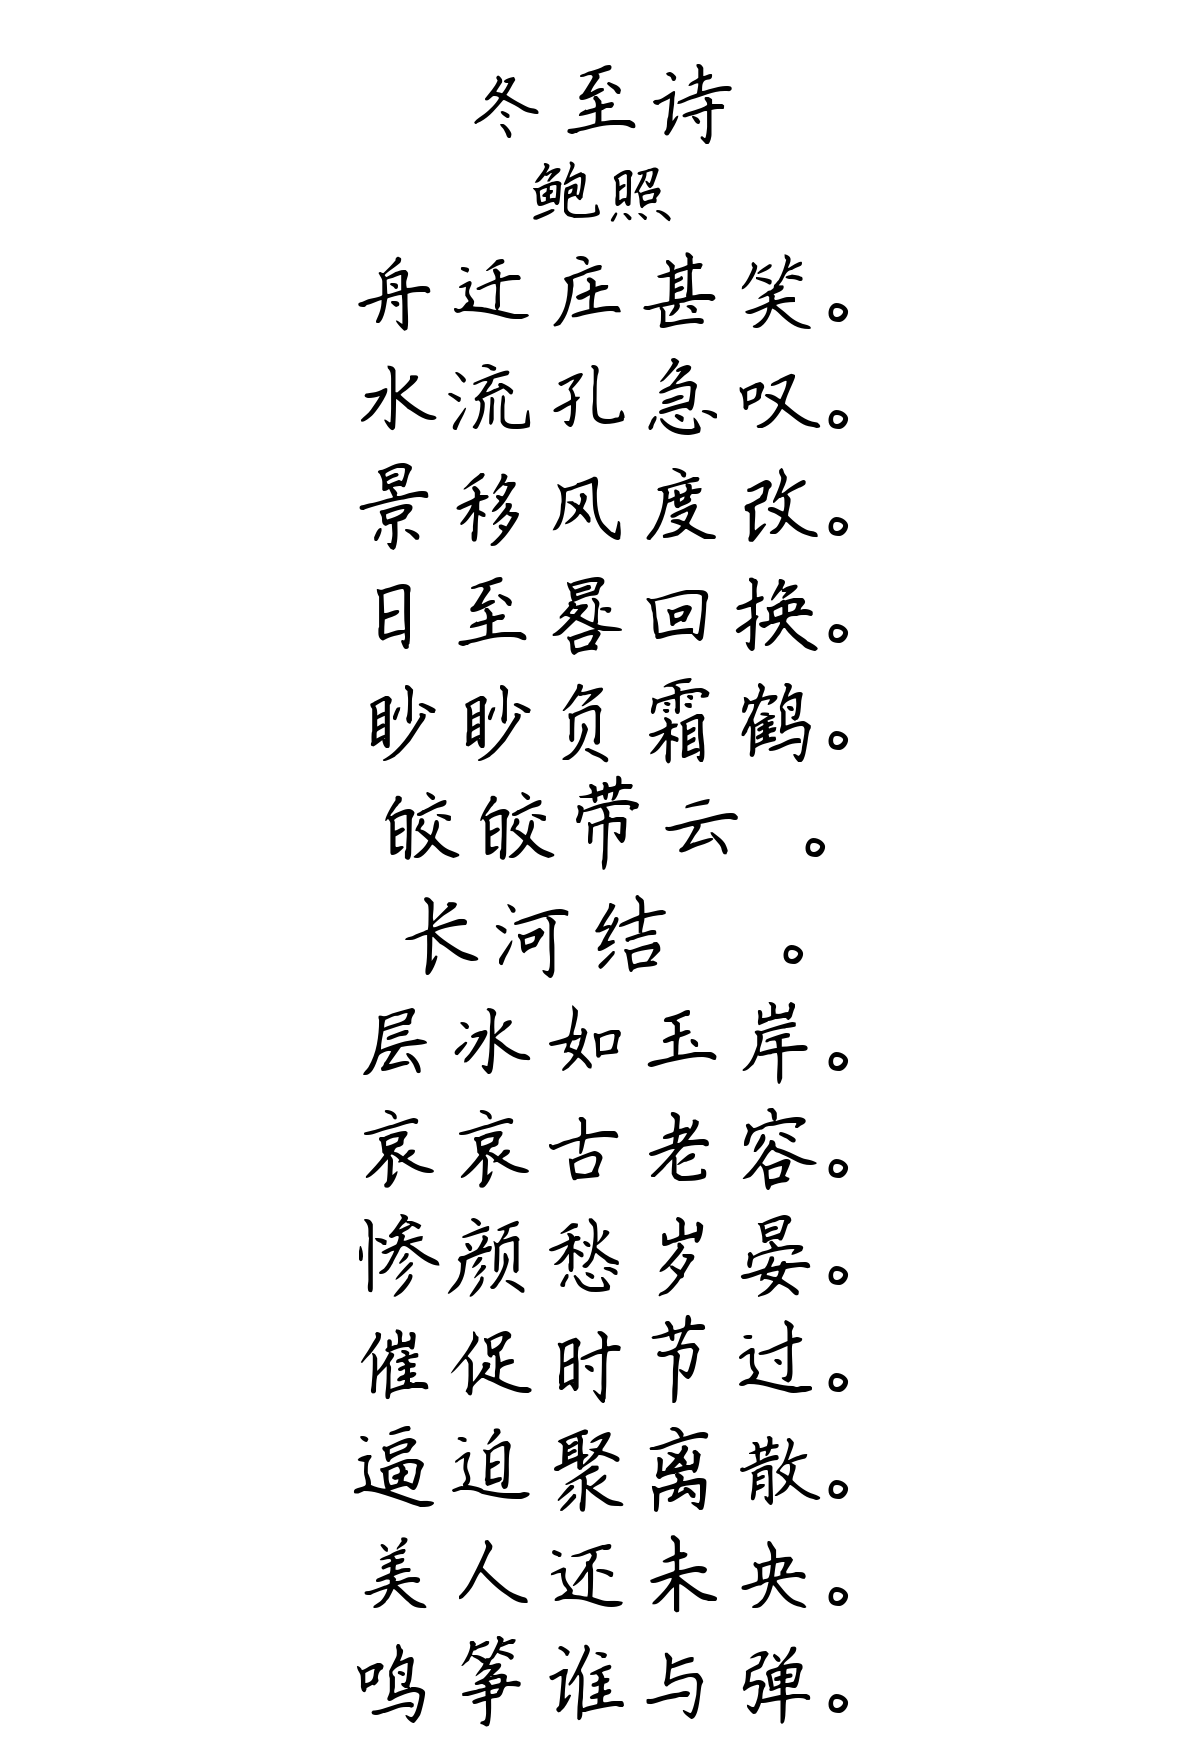 冬至诗
鲍照
舟迁庄甚笑。
水流孔急叹。
景移风度改。
日至晷回换。
眇眇负霜鹤。
皎皎带云 。
长河结 。
层冰如玉岸。
哀哀古老容。
惨颜愁岁晏。
催促时节过。
逼迫聚离散。
美人还未央。
鸣筝谁与弹。